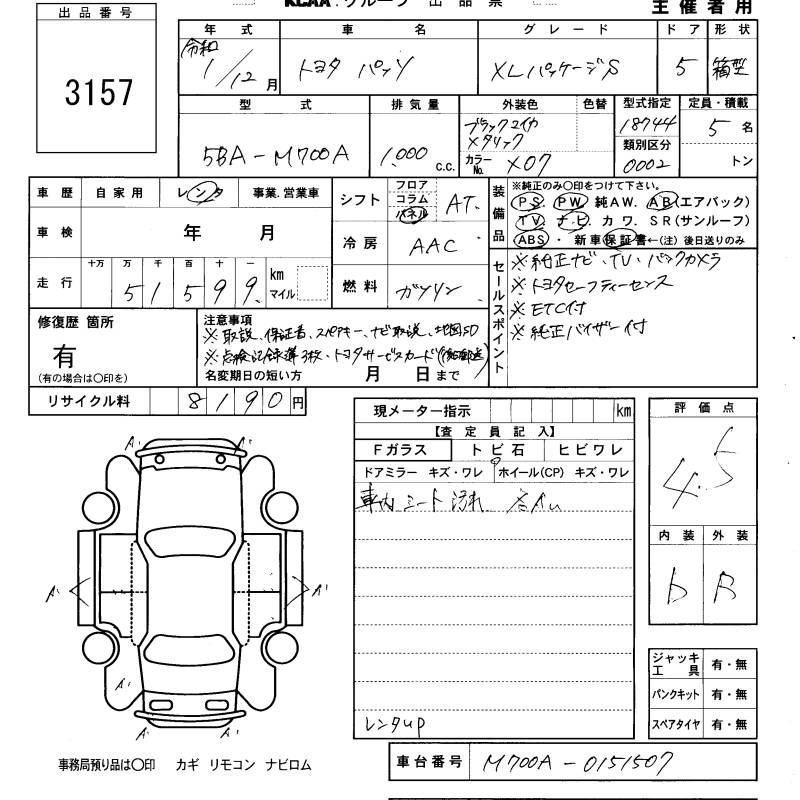 KCAA.グループ 出品票
主催者用
出品番号
3157
年式 車名 グレード ドア 形状
令和 1/12月 トヨタ パッソ XLパッケージS 5 箱型
型式 排気量 外装色 色替 型式指定 定員・積載
5BA-M700A 1,000 c.c. ブラックマイカメタリック 18744 5名
カラーNo. X07 類別区分 0002 トン
車歴 自家用 レンタ 事業.営業車
シフト フロア コラム パネル AT.
装備品 ※純正のみ○印をつけて下さい。
PS. PW 純AW. AB(エアバック)
TV ナビ. カワ. SR(サンルーフ)
ABS・新車保証書←(注)後日送りのみ
車検 年 月
冷房 AAC
走行 十万 万 千 百 十 一
51599 km マイル
燃料 ガソリン
セールスポイント
※純正ナビ・TV・バックカメラ
※トヨタセーフティーセンス
※ETC付
※純正バイザー付
修復歴 箇所
有
(有の場合は○印を)
注意事項
※取説、保証書、スペアキー、ナビ取説、地図SD
※点検記録簿3枚・トヨタサービスカード
名変期日の短い方 月 日まで
リサイクル料 8190円
現メーター指示 km
【査定員記入】
Fガラス トビ石 ヒビワレ
ドアミラー キズ・ワレ ホイール(CP) キズ・ワレ
車内 シート 汚れ
レンタup
評価点
4.5
内装 外装
b B
A' A'
A' A'
A'
A'
ジャッキ工具 有・無
パンクキット 有・無
スペアタイヤ 有・無
事務局預り品は○印 カギ リモコン ナビロム
車台番号 M700A-0151507